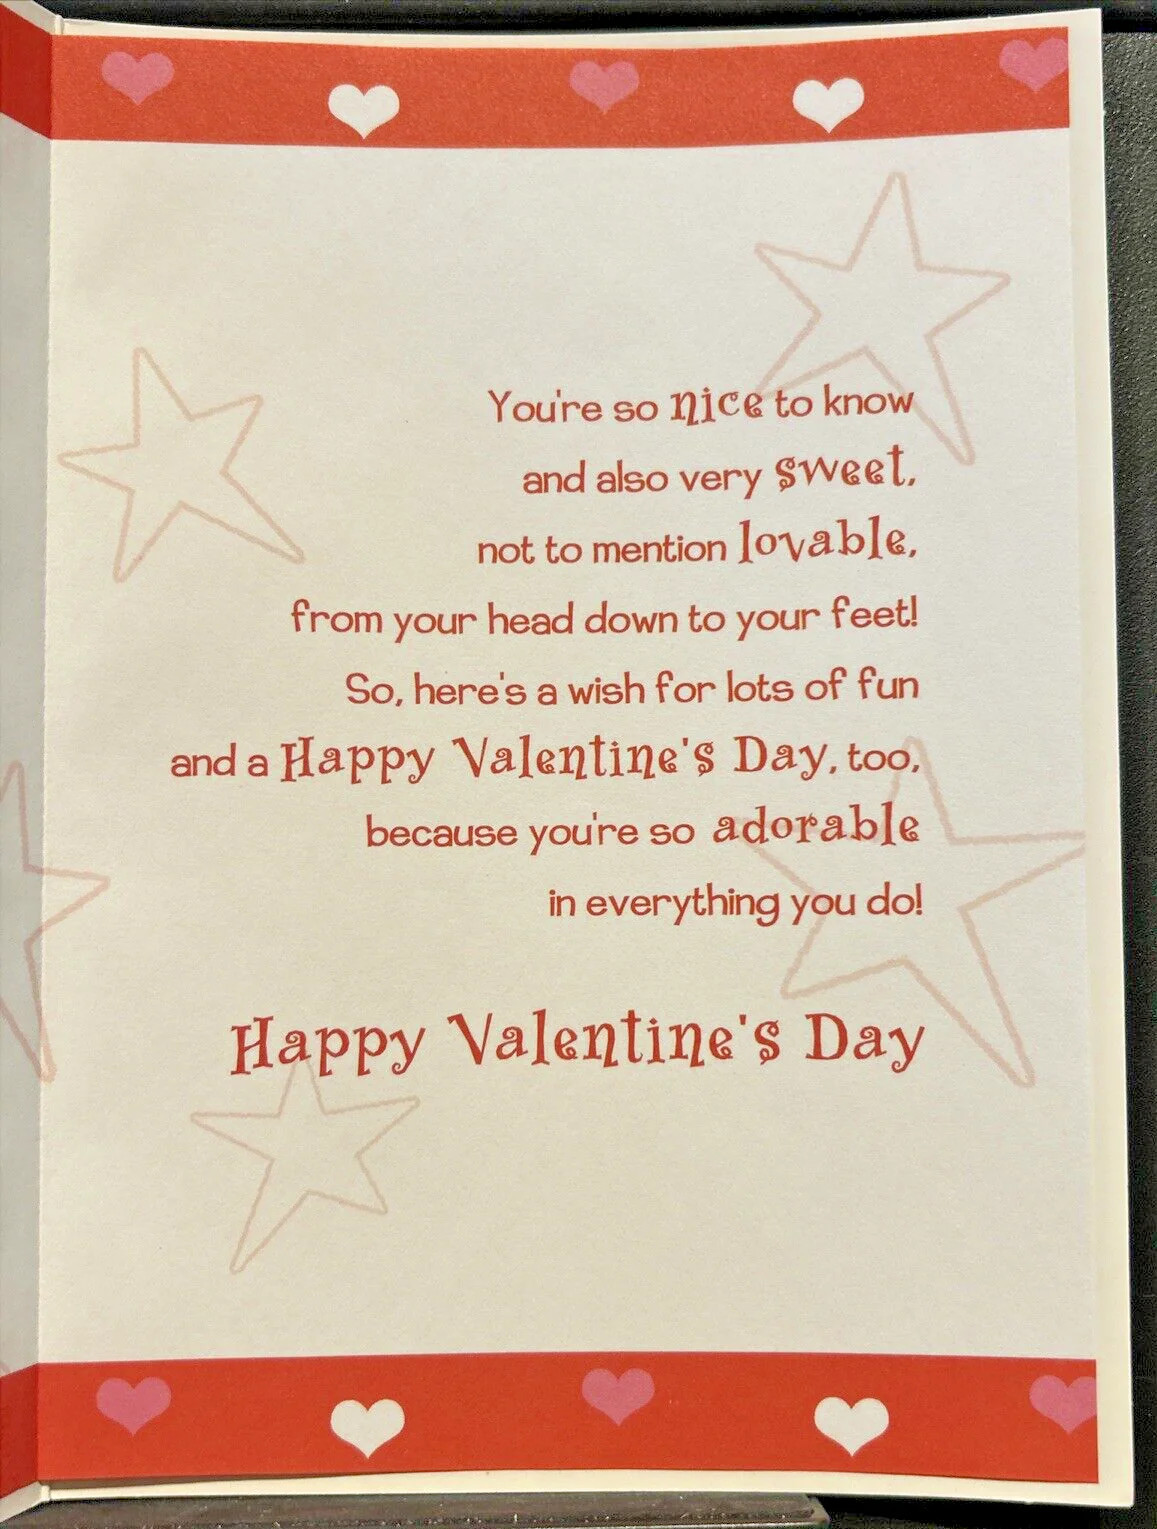 You're so nice to know
and also very sweet,
not to mention lovable,
from your head down to your feet!
So, here's a wish for lots of fun
and a Happy Valentine's Day, too,
because you're so adorable
in everything you do!
Happy Valentine's Day